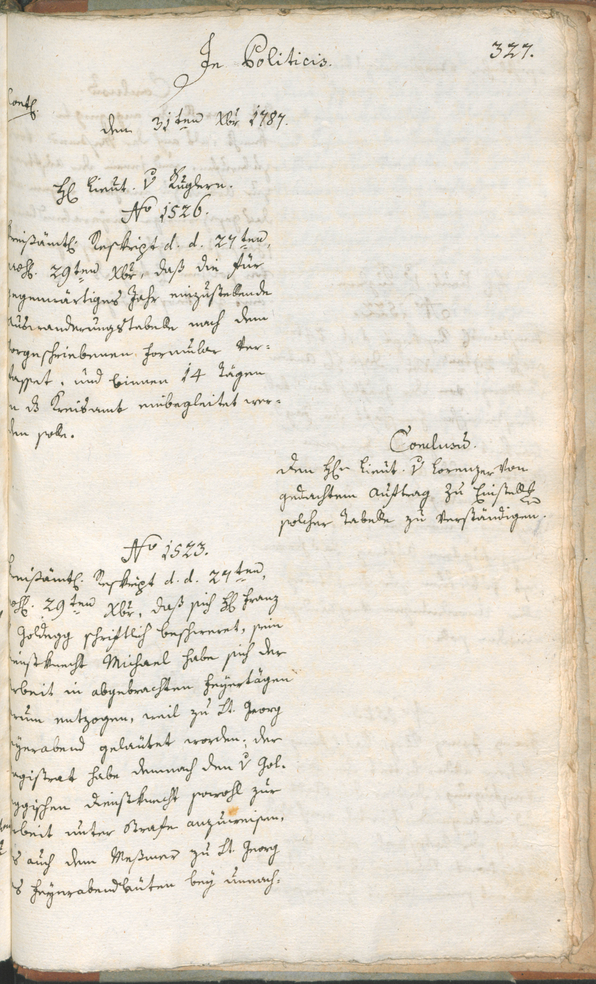 In Politicis.
327.
den 31ten Xbr 1787.
H: Lieut. v
No 1526.
Kreisämtl. Reskript d. d. 27ten,
29ten Xbr, daß die für
gegenwärtiges Jahr einzustellende
auswanderungstabelle nach dem
vorgeschriebenen Formular ver=
fasset, und binnen 14 Tägen
Kreisamt einbegleitet wer=
den solle.
Conclusū.
dem H: Lieut. v Lorenzer von
gedachtem Auftrag zu Einstell
solcher Tabelle zu verständigen.
No 1523.
Kreisämtl. Reskript d. d. 27ten,
29ten Xbr, daß sich H: Franz
Goldegg schriftlich beschweret, sein
dienstknecht Michael habe sich der
arbeit in abgebrachten Feyertägen
darum entzogen, weil zu St. Georg
feyerabend geläutet worden; der
Magistrat habe demnach den v Gol=
deggischen dienstknecht sowohl zur
arbeit unter Strafe anzuweisen,
als auch dem Meßmer zu St. Georg
das Feyerabendläuten bey unnach=